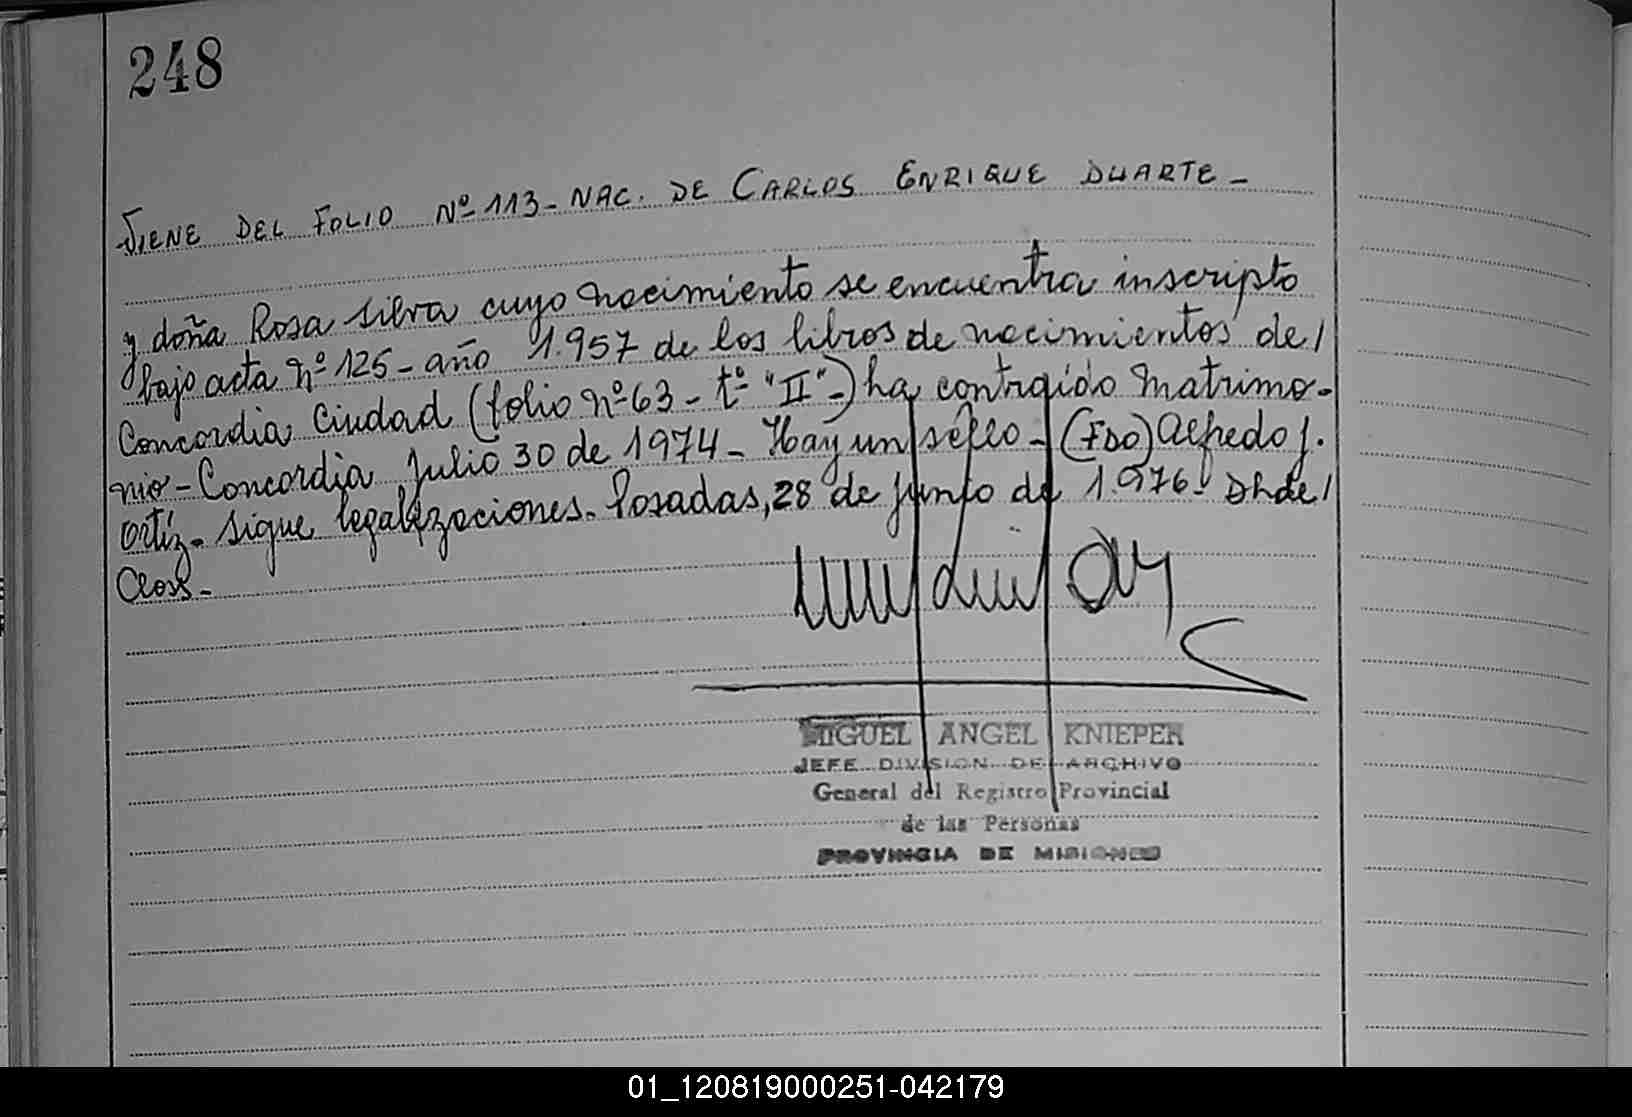 248
VIENE DEL FOLIO Nº 113 - NAC. DE CARLOS ENRIQUE DUARTE -
y doña Rosa Silva cuyo nacimiento se encuentra inscripto
bajo acta nº 125 - año 1.957 de los libros de nacimientos de/
Concordia Ciudad (folio nº 63 - tº "II" -) ha contraído matrimo-
nio - Concordia Julio 30 de 1974 - Hay un sello - (FDO) Alfredo J.
Ortíz - Sigue legalizaciones - Posadas, 28 de junio de 1.976 -
Closs -
MIGUEL ANGEL KNIEPER
JEFE DIVISION DE ARCHIVO
General del Registro Provincial
de las Personas
PROVINCIA DE MISIONES
01_120819000251-042179